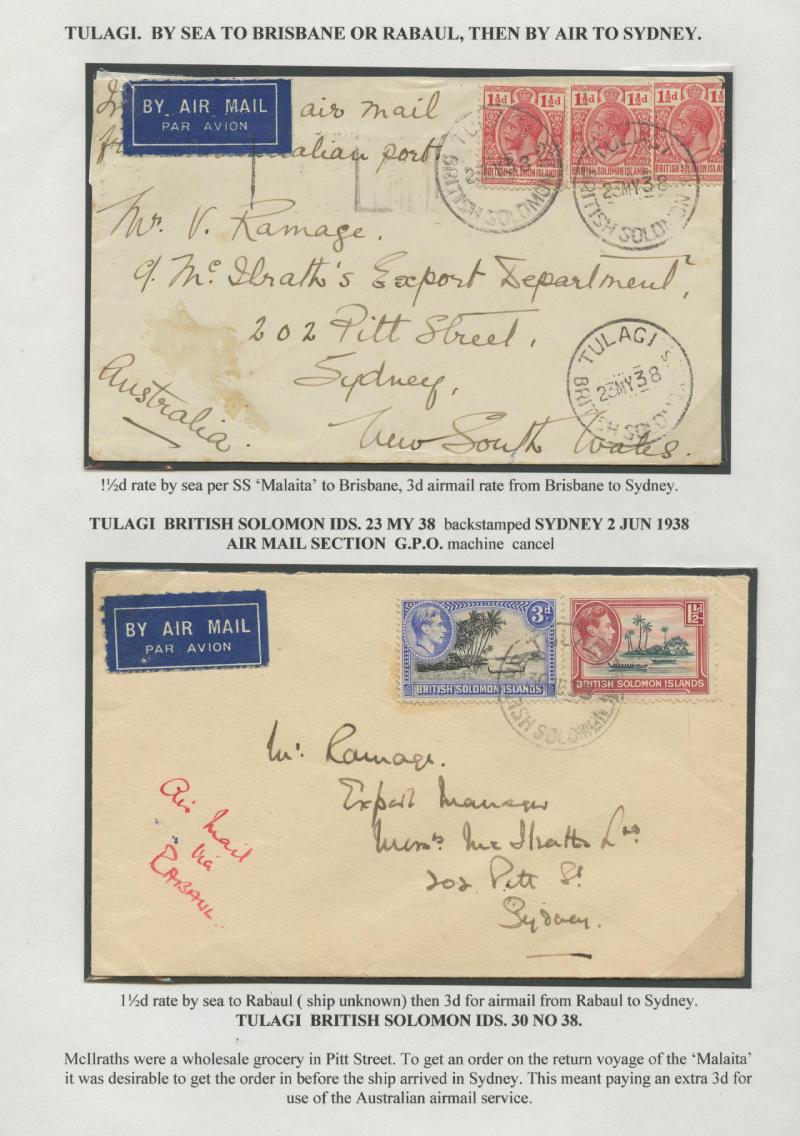 TULAGI. BY SEA TO BRISBANE OR RABAUL, THEN BY AIR TO SYDNEY.
BY AIR MAIL
PAR AVION
air mail
port
1½d 1½d
1½d 1½d
1½d
BRITISH SOLOMON ISLANDS
BRITISH SOLOMON ISLANDS
BRITISH SOLOMON ISLANDS
TULAGI
BRITISH SOLOMON
TULAGI
23MY38
BRITISH SOLOMON
Mr. V. Ramage.
c/. Mc Ilrath's Export Department,
202 Pitt Street,
Sydney,
New South Wales.
Australia.
TULAGI
23MY38
BRITISH SOLOMON
!½d rate by sea per SS ‘Malaita’ to Brisbane, 3d airmail rate from Brisbane to Sydney.
TULAGI BRITISH SOLOMON IDS. 23 MY 38 backstamped SYDNEY 2 JUN 1938
AIR MAIL SECTION G.P.O. machine cancel
BY AIR MAIL
PAR AVION
3d
BRITISH SOLOMON ISLANDS
1½d
BRITISH SOLOMON ISLANDS
Mr. Ramage.
Export Manager
Messrs Mc Ilraths Ltd
202 Pitt St
Sydney.
Air Mail
via
RABAUL.
1½d rate by sea to Rabaul ( ship unknown) then 3d for airmail from Rabaul to Sydney.
TULAGI BRITISH SOLOMON IDS. 30 NO 38.
McIlraths were a wholesale grocery in Pitt Street. To get an order on the return voyage of the ‘Malaita’
it was desirable to get the order in before the ship arrived in Sydney. This meant paying an extra 3d for
use of the Australian airmail service.